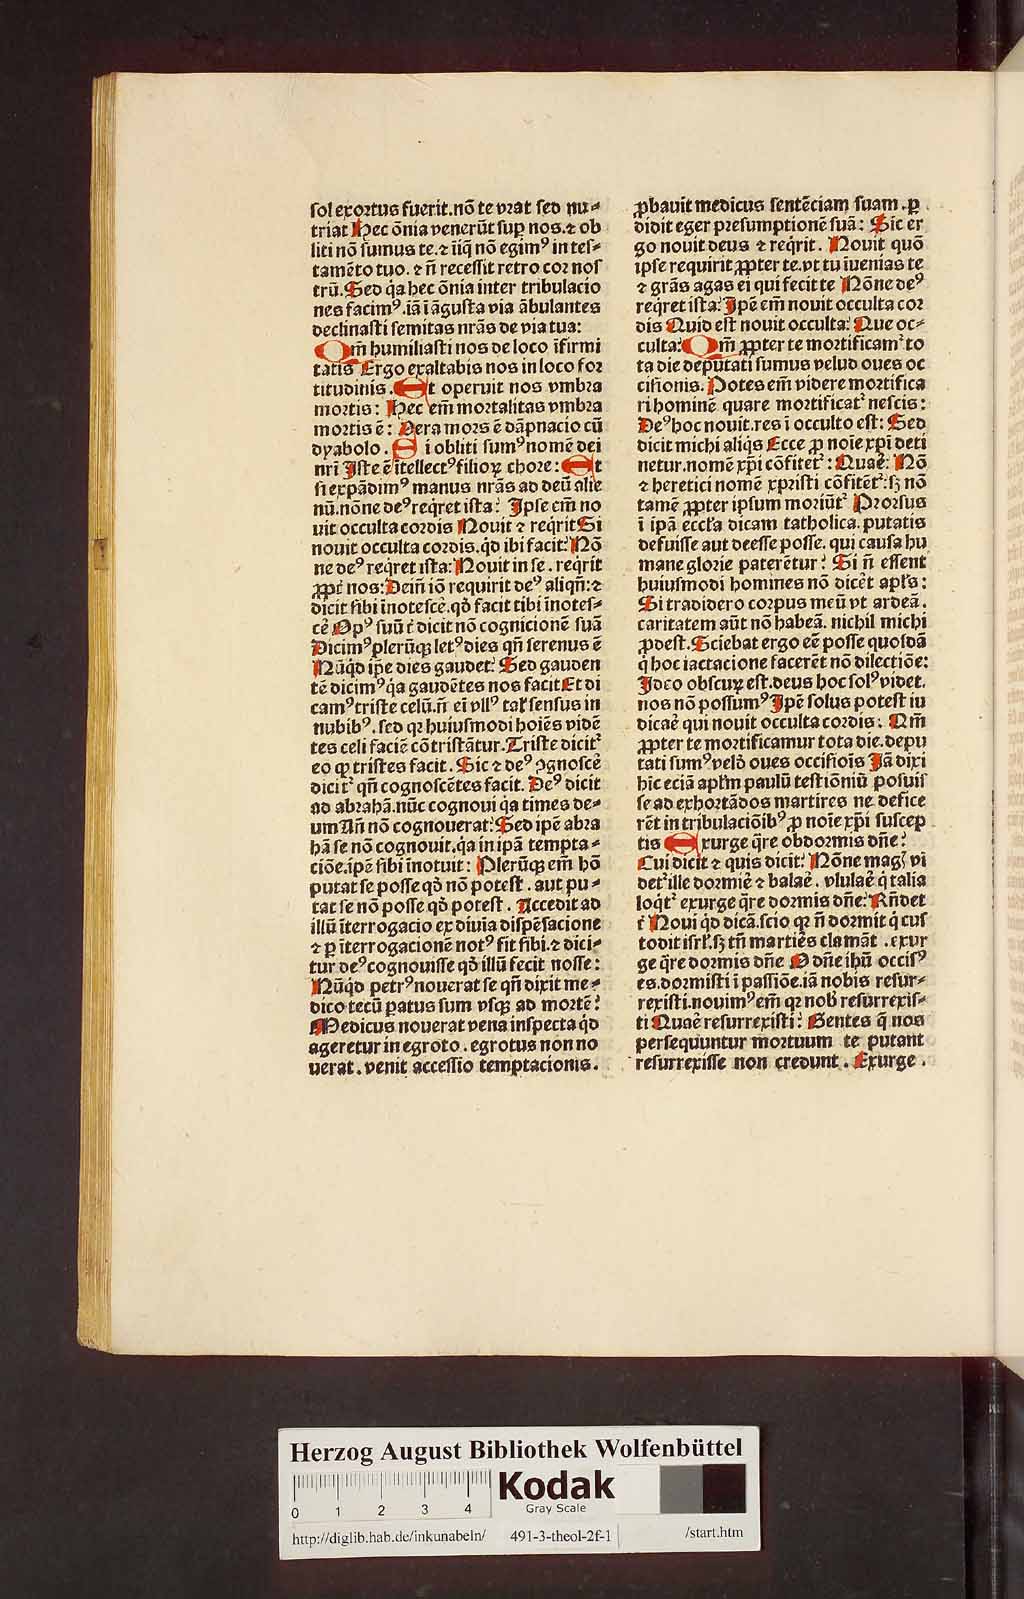 sol exortus fuerit.nō te vrat sed nu⸗
triat Hec ōnia venerūt suꝑ nos.⁊ ob
liti nō sumus te.⁊ iīq̄ nō egimꝰ in tes⸗
tamēto tuo. ⁊ n̄ recessit retro cor nos
trū.Sed q̇a hec ōnia inter tribulacio
nes facimꝰ.iā ī āgusta via ābulantes
declinasti semitas nr̄as de via tua:
Qm̄ humiliasti nos de loco īfirmi
tatis Ergo exaltabis nos in loco for
titudinis. Et operuit nos vmbra
mortis: Hec em̄ mortalitas vmbra
mortis ē: Vera mors ē dāpnacio cū
dyabolo. Si obliti sumꝰ nomē dei
nr̄i Iste ē ītellectꝰ filioꝝ chore: Et
si expādimꝰ manus nr̄as ad deū alie
nū.nōne deꝰ reqret ista: Ipse em̄ no
uit occulta cordis Nouit ⁊ reqrit Si
nouit occulta cordis.q̇d ibi facit: Nō
ne deꝰ reqret ista: Nouit in se. reqrit
ꝓpt̄ nos: Dein̄ iō requirit deꝰ aliqn̄:⁊
dicit sibi inotescē.qd̄ facit tibi inotes⸗
cē Opꝰ suū t̄ dicit nō cognicionē suā
Dicimꝰ plerūqꝫ letꝰ dies qn̄ serenus ē
Nūq̇d ip̄e dies gaudet: Sed gauden
tē dicimꝰ q̇a gaudētes nos facit Et di
camꝰ triste celū.n̄ ei vllꝰ tal̄ sensus in
nubibꝰ.sed qꝛ huiusmodi hoīes vidē
tes celi faciē cōtristātur.Triste dicit᷑
eo ꝙ tristes facit. Sic ⁊ deꝰ ꝯgnoscē
dicit᷑ qn̄ cognoscētes facit. Deꝰ dicit
ad abrahā.nūc cognoui q̇a times de⸗
um An̄ nō cognouerat: Sed ipē abra
hā se nō cognouit.q̇a in ipā tempta⸗
ciōe.ipē sibi inotuit: Plerūqꝫ em̄ hō
putat se posse qd̄ nō potest. aut pu⸗
tat se nō posse qd̄ potest. Accedit ad
illū īterrogacio ex diuīa dispēsacione
⁊ ꝑ īterrogacionē notꝰ fit sibi.⁊ dici⸗
tur deꝰ cognouisse qd̄ illū fecit nosse:
Nūq̇d petrꝰ nouerat se qn̄ dixit me⸗
dico tecū ꝑatus sum vsqꝫ ad mortē:
Medicus nouerat vena inspecta q̇d
ageretur in egroto. egrotus non no
uerat. venit accessio temptacionis.
ꝓbauit medicus sentēciam suam.ꝑ
didit eger presumptionē suā: Sic er
go nouit deus ⁊ reqrit. Nouit quō
ipse requirit ꝓpter te.vt tu īuenias te
⁊ gr̄as agas ei qui fecit te Nōne deꝰ
reqret ista: Ipē em̄ nouit occulta cor
dis Quid est nouit occulta: Que oc⸗
culta: Qm̄ ꝓpter te mortificam᷑ to
ta die deputati sumus velud oues oc
cisionis. Potes em̄ videre mortifica
ri hominē quare mortificat᷑ nescis:
Deꝰ hoc nouit.res ī occulto est: Sed
dicit michi aliq̇s Ecce ꝓ noīe xp̄i deti
netur.nomē xp̄i cōfitet᷑: Quaē: Nō
⁊ heretici nomē xpristi cōfitēt᷑:sꝫ nō
tamē ꝓpter ipsum moriūt᷑ Prorsus
ī ipā eccl̄a dicam tatholica.putatis
defuisse aut deesse posse. qui causa hu
mane glorie paterētur: Si n̄ essent
huiusmodi homines nō dicēt apl̄s:
Si tradidero corpus meū vt ardeā.
caritatem aūt nō habeā. nichil michi
ꝓdest. Sciebat ergo eē posse quosdā
q̇ hoc iactacione facerēt nō dilectiōe:
Ideo obscuꝝ est.deus hoc solꝰ videt.
nos nō possumꝰ Ipē solus potest iu
dicaē qui nouit occulta cordis: Qm̄
ꝓpter te mortificamur tota die.depu
tati sumꝰ veld̄ oues occisiōis Iā dixi
hīc eciā apl̄m paulū testiōniū posuis
se ad exhortādos martires ne defice
rēt in tribulaciōibꝰ ꝓ noīe xp̄i suscep
tis Exurge q̄re obdormis dn̄e:
Cui dicit ⁊ quis dicit: Nōne mag᷑ vi
det᷑ ille dormiē ⁊ balaē. vlulaē q̇ talia
loq̇t᷑ exurge q̄re dormis dn̄e: Rn̄det
t̄ Noui q̇d dicā.scio qꝛ n̄ dormit q̇ cus
todit isrl̄.sꝫ tn̄ martiēs clamāt.exur
ge q̄re dormis dn̄e O dn̄e ihū occisꝰ
es.dormisti ī passiōe.iā nobis resur⸗
rexisti.nouimꝰ em̄ qꝛ nob̄ resurrexis⸗
ti Quaē resurrexisti: Gentes q̄ nos
persequuntur mortuum te putant
resurrexisse non credunt. Exurge.
Herzog August Bibliothek Wolfenbüttel
0 1 2 3 4
Kodak
Gray Scale
http://diglib.hab.de/inkunabeln/ 491-3-theol-2f-1 /start.htm